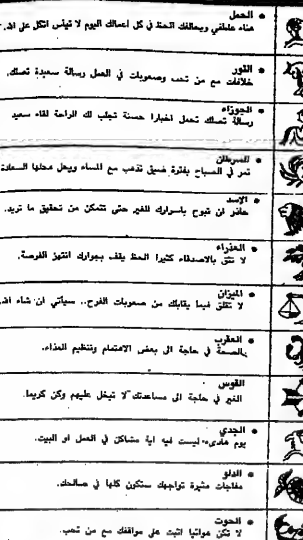 • الحمل
هناء عاطفي ويحالفك الحظ في كل اعمالك اليوم لا تيأس اتكل على الله.
• الثور
خلافات مع من تحب وصعوبات في العمل رسالة سعيدة تصلك.
• الجوزاء
رسالة تصلك تحمل اخبارا حسنة تجلب لك الراحة لقاء سعيد
• السرطان
تمر في الصباح بفترة ضيق تذهب مع المساء ويحل محلها السعادة
• الاسد
حاذر ان تبوح باسرارك للغير حتى تتمكن من تحقيق ما تريد.
• العذراء
لا تثق بالاصدقاء كثيرا الحظ يقف بجوارك انتهز الفرصة.
• الميزان
لا تقلق فيما يقابلك من صعوبات الفرح.. سيأتي ان شاء الله.
• العقرب
الصحة في حاجة الى بعض الاهتمام وتنظيم الغذاء.
القوس
الغير في حاجة الى مساعدتك لا تبخل عليهم وكن كريما.
• الجدي
يوم هادىء ليست فيه اية مشاكل في العمل او البيت.
• الدلو
مفاجآت مثيرة تواجهك ستكون كلها في صالحك.
• الحوت
لا تكن هوائيا اثبت على مواقفك مع من تحب.